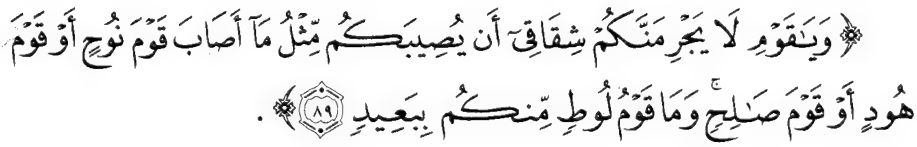 ﴿ وَيَـٰقَوْمِ لَا يَجْرِمَنَّكُمْ شِقَاقِىٓ أَن يُصِيبَكُم مِّثْلُ مَآ أَصَابَ قَوْمَ نُوحٍ أَوْ قَوْمَ
هُودٍ أَوْ قَوْمَ صَـٰلِحٍ ۚ وَمَا قَوْمُ لُوطٍ مِّنكُم بِبَعِيدٍ ۝٨٩ ﴾ .